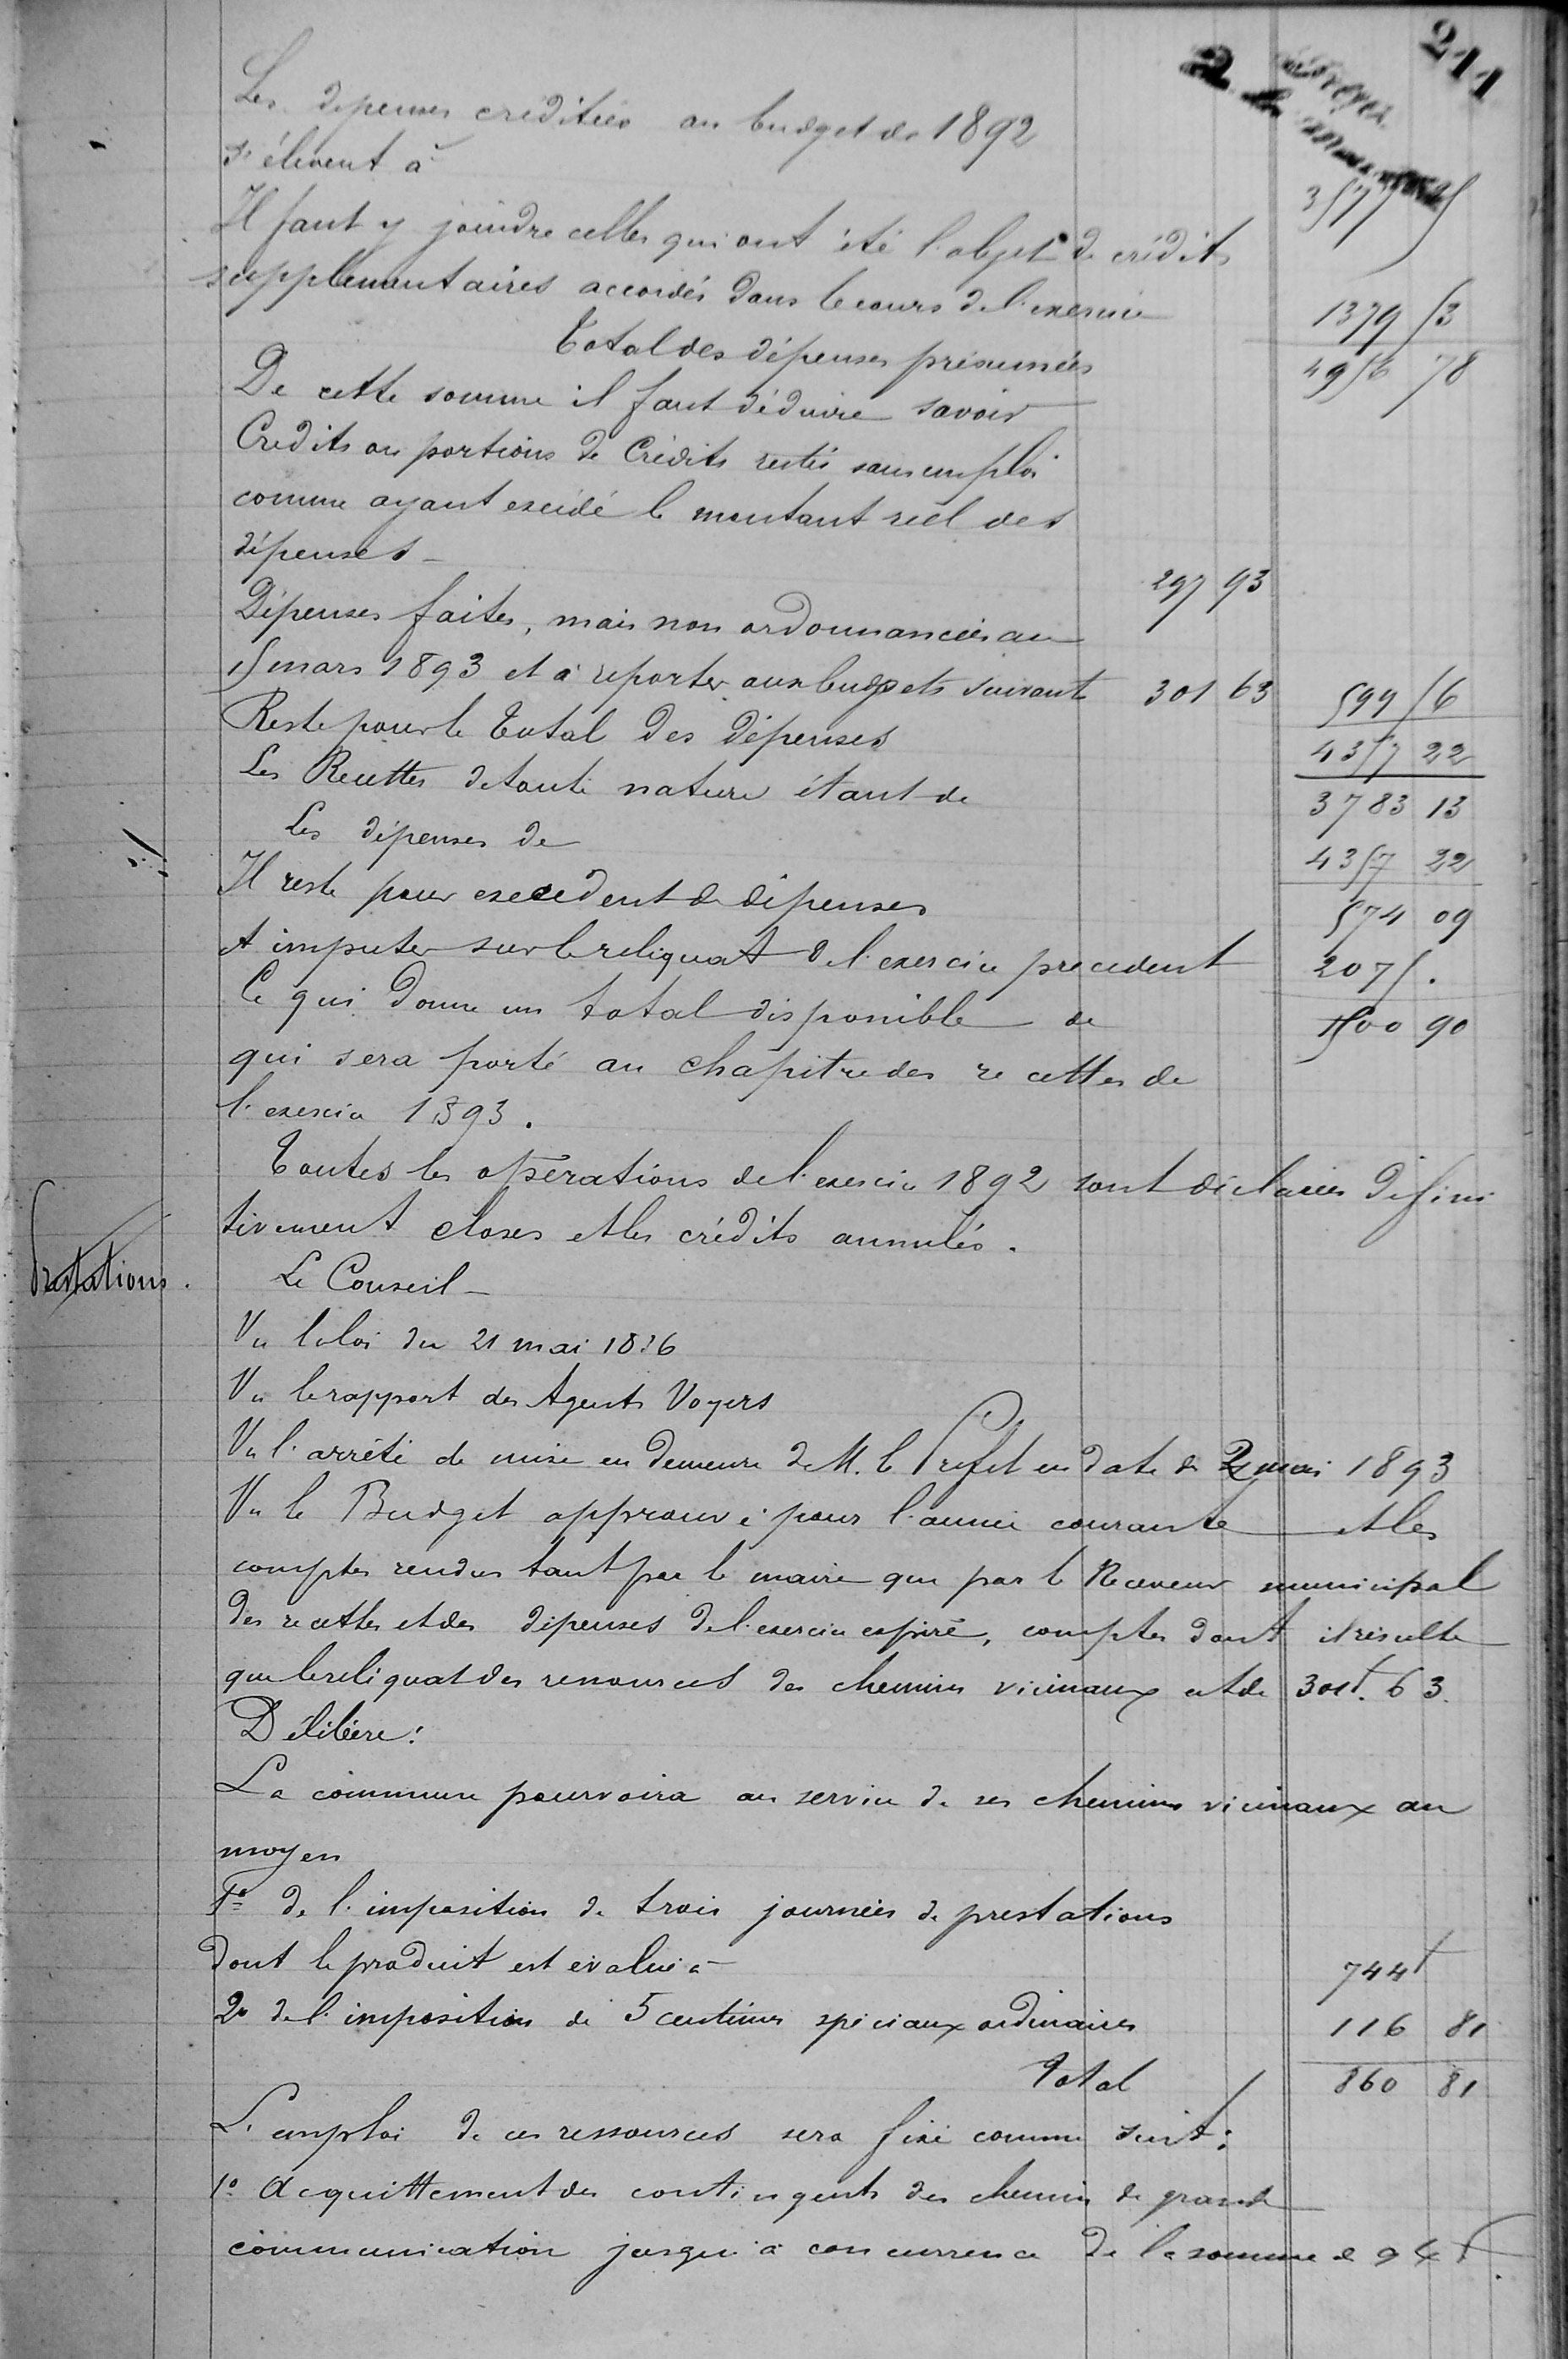 211
Les dépenses créditées au budget de 1892
s'élèvent à 3577 25
Il faut y joindre celles qui ont été l'objet de crédits
supplémentaires accordés dans le cours de l'exercice 1379 53
Total des dépenses présumées 4956 78
De cette somme il faut déduire savoir
Crédits ou portions de Crédits restés sans emploi
comme ayant excédé le montant réel des
dépenses 297 93
Dépenses faites, mais non ordonnancées au
15 mars 1893 et à reporter aux budgets suivants 301 63 599 56
Reste pour le Total des dépenses 4357 22
Les Recettes de toute nature étant de 3783 13
Les dépenses de 4357 22
Il reste pour excedent de dépenses 574 09
A imputer sur le reliquat de l'exercice precedent 2075 .
Ce qui donne un total disponible de 1500 90
qui sera porté au chapitre des recettes de
l'exercice 1893.
Toutes les opérations de l'exercice 1892 sont déclarées défini
tivement closes et les crédits annulés.
Prestations.
Le Conseil
Vu la loi du 21 mai 1836
Vu le rapport des Agents Voyers
Vu l'arrêté de mise en demeure de M. le Préfet en date du 2 mai 1893
Vu le Budget approuvé pour l'année courante et les
comptes rendus tant par le maire que par le Receveur municipal
des recettes et des dépenses de l'exercice expiré, comptes dont il résulte
que le reliquat des ressources des chemins vicinaux est de 301f. 63.
Délibère :
La commune pourvoira au service de ses chemins vicinaux au
moyen
1º de l'imposition de trois journées de prestations
dont le produit est évalué à 744f
2º de l'imposition de 5 centimes spéciaux ordinaires 116 81
Total 860 81
L'emploi de ces ressources sera fixé comme suit :
1º Acquittement des contingents des chemins de grande
communication jusqu'à concurrence de la somme de 94f.